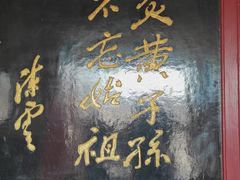 炎黄子孫
不忘始祖
陈云